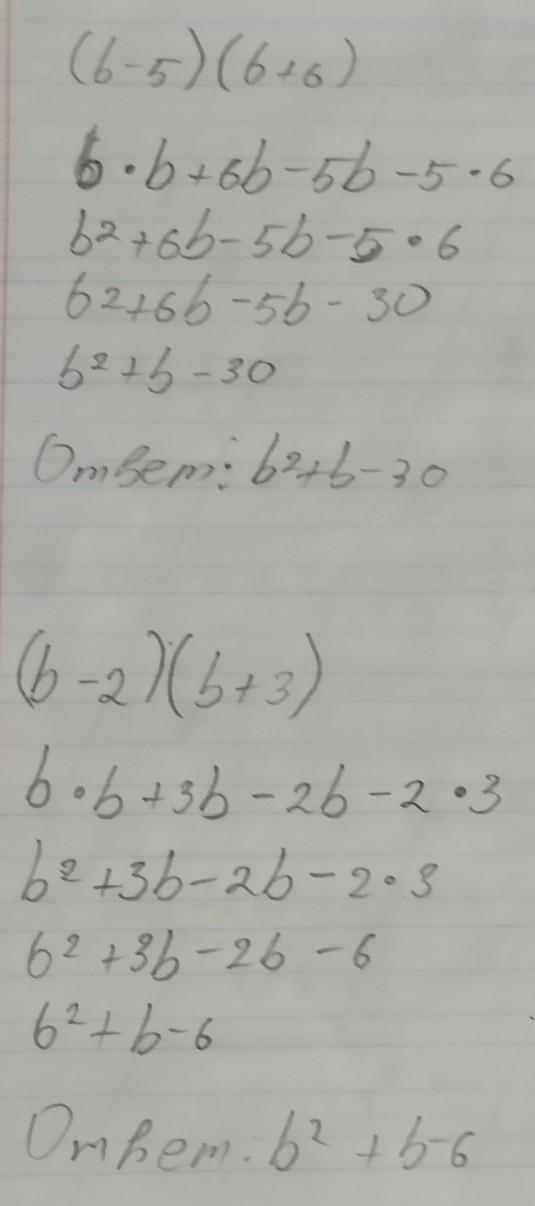 (b-5)(b+6)
b·b+6b-5b-5·6
b²+6b-5b-5·6
b²+6b-5b-30
b²+b-30
Ответ: b²+b-30
(b-2)(b+3)
b·b+3b-2b-2·3
b²+3b-2b-2·3
b²+3b-2b-6
b²+b-6
Ответ. b²+b-6